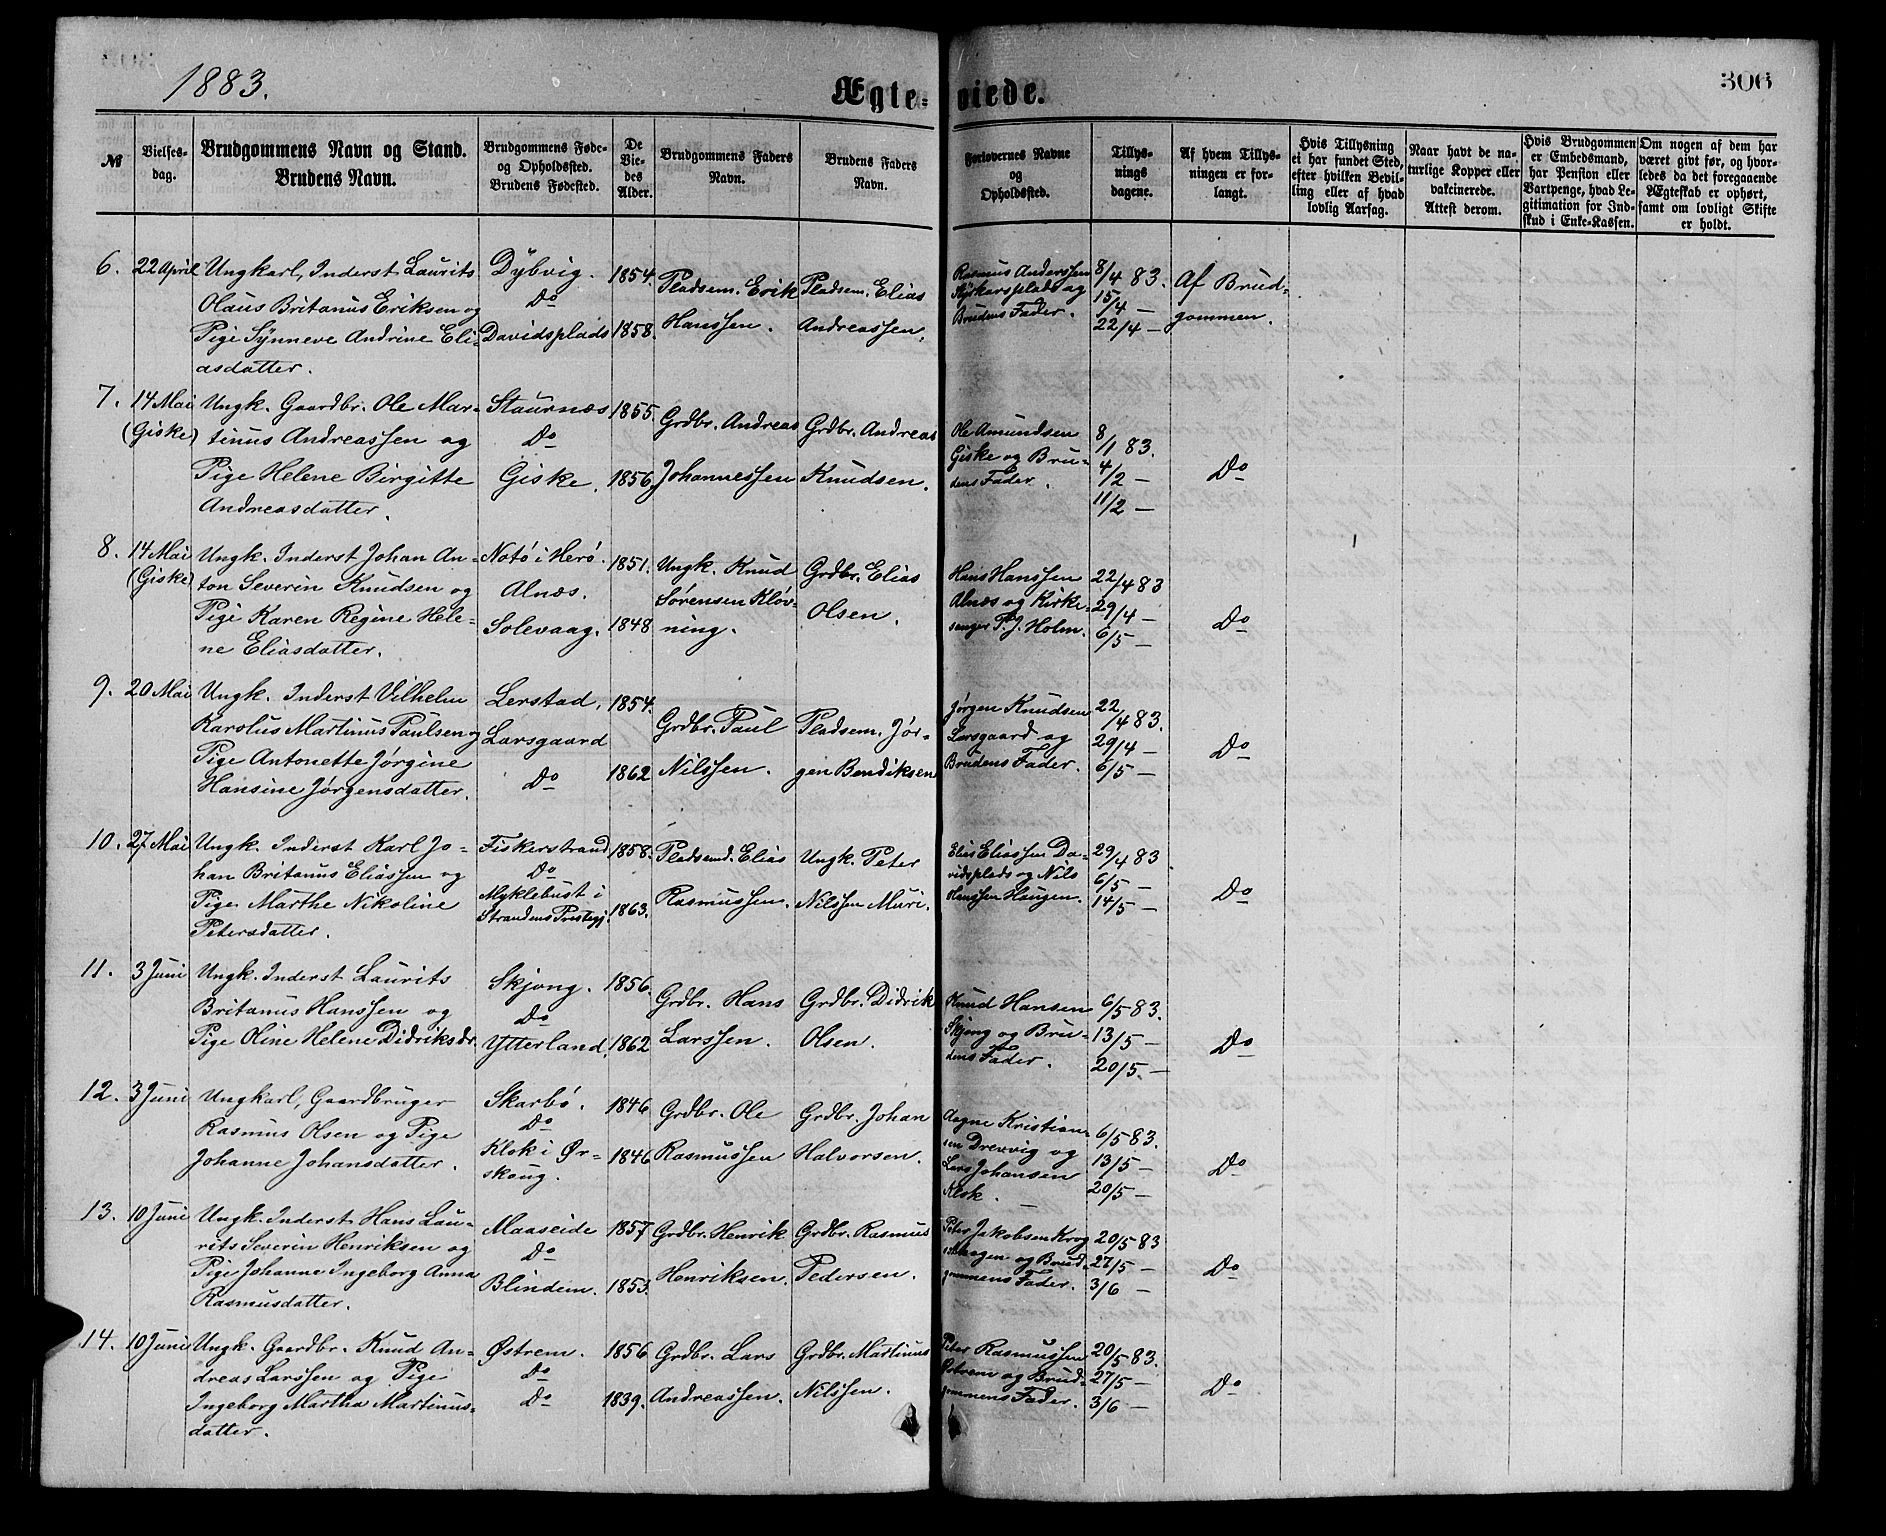 1883.
Ægte-viede.
306
№
Vielses-dag.
Brudgommens Navn og Stand.
Brudens Navn.
Brudgommens Føde- og Opholdssted.
Brudens Fødested.
De Vie-des Alder.
Brudgommens Faders Navn.
Brudens Faders Navn.
Forlovernes Navne og Opholdssted.
Tillys-nings dagene.
Af hvem Tillys-ningen er for-langt.
Hvis Tillysning ei har fundet Sted, efter hvilken Bevil-ling eller af hvad lovlig Aarsag.
Naar havt de na-turlige Kopper eller vakcinerede.
Attest derom.
Hvis Brudgommen er Embedsmand, har Pension eller Vartpenge, hvad Le-gitimation for Ind-skud i Enke-Kassen.
Om nogen af dem har været givt før, og hvor-ledes da det foregaaende Ægteskab er ophørt, samt om lovligt Skifte er holdt.
6. 22 April Ungkarl, Inderst Laurits Dybvig. 1854. Pladsm. Erik Pladsm. Elias Rasmus Anderssen 8/4 83. Af Brud-
Olaus Britanus Eriksen og Do plads og 15/4 —
Pige Synneve Andrine Eli- Davidsplads 1858. Hanssen. Andreassen. Brudens Fader. 22/4 — gommen.
asdatter.
7. 14 Mai Ungk. Gaardbr. Ole Mar- Staurnæs 1855. Grdbr. Andreas Grdbr. Andreas Ole Amundsen 8/1 83.
(Giske) tinus Andreassen og Do Giske og Bru- 4/2 — Do
Pige Helene Birgitte Giske. 1856. Johannessen Knudsen. dens Fader. 11/2 —
Andreasdatter.
8. 14 Mai Ungk. Inderst Johan An- Notö i Herö. 1851. Ungk. Knud Grdbr. Elias Hans Hanssen 22/4 83
(Giske) ton Severin Knudsen og Alnæs. Sørensen Kløv- Olsen. Alnæs og Kirke- 29/4 — Do
Pige Karen Regine Hele- Solevaag. 1848 ning. sanger P. J. Holm. 6/5 —
ne Eliasdatter.
9. 20 Mai Ungk. Inderst Vilhelm Lerstad. 1854. Grdbr. Paul Pladsm. Jør- Jørgen Knudsen 22/4 83.
Karolus Martinus Paulsen og Larsgaard Larsgaard og 29/4 — Do
Pige Antonette Jørgine Do 1862 Nilssen. gen Bendiksen Brudens Fader. 6/5 —
Hansine Jørgensdatter.
10. 27 Mai Ungk. Inderst Karl Jo- Fiskerstrand 1858. Pladsmd. Elias Ungk. Peter Elias Eliassen Da- 29/4 83
han Britanus Eliassen og Do vidsplads og Nils 6/5 — Do
Pige Marthe Nikoline Myklebust i 1863. Rasmussen. Nilssen Muri. Hanssen Haugen. 14/5 —
Petersdatter. Strandens Prestegj.
11. 3 Juni Ungk. Inderst Laurits Skjong. 1856. Grdbr. Hans Grdbr. Didrik Knud Hansen 6/5 83.
Britanus Hanssen og Do Skjong og Bru- 13/5 — Do
Pige Oline Helene Didriksdr. Ytterland. 1862 Larssen. Olsen. dens Fader. 20/5 —
12. 3 Juni Ungkarl, Gaardbruger Skarbö. 1846 Grdbr. Ole Grdbr. Johan Kristian- 6/5 83.
Rasmus Olsen og Pige Do sen Drevvig og 13/5 — Do
Johanne Johansdatter. Klok i Ør- 1846 Rasmussen Halvorsen. Lars Johansen 20/5 —
skoug. Klok.
13. 10 Juni Ungk. Inderst Hans Lau- Maaseide 1857 Grdbr. Henrik Grdbr. Rasmus Peter Jakobsen Krog 20/5 83
rits Severin Henriksen og Do og Brud- 27/5 — Do
Pige Johanne Ingeborg Anna Blindem. 1853. Henriksen. Pedersen. gommens Fader. 3/6 —
Rasmusdatter.
14. 10 Juni Ungk. Gaardbr. Knud An- Østrem. 1856 Grdbr. Lars Grdbr. Martinus Peter Rasmussen 20/5 83.
dreas Larssen og Pige Do Østrem og Brud- 27/5 — Do
Ingeborg Martha Martinus- Do 1839. Andreassen. Nilssen. gommens Fader. 3/6 —
datter.